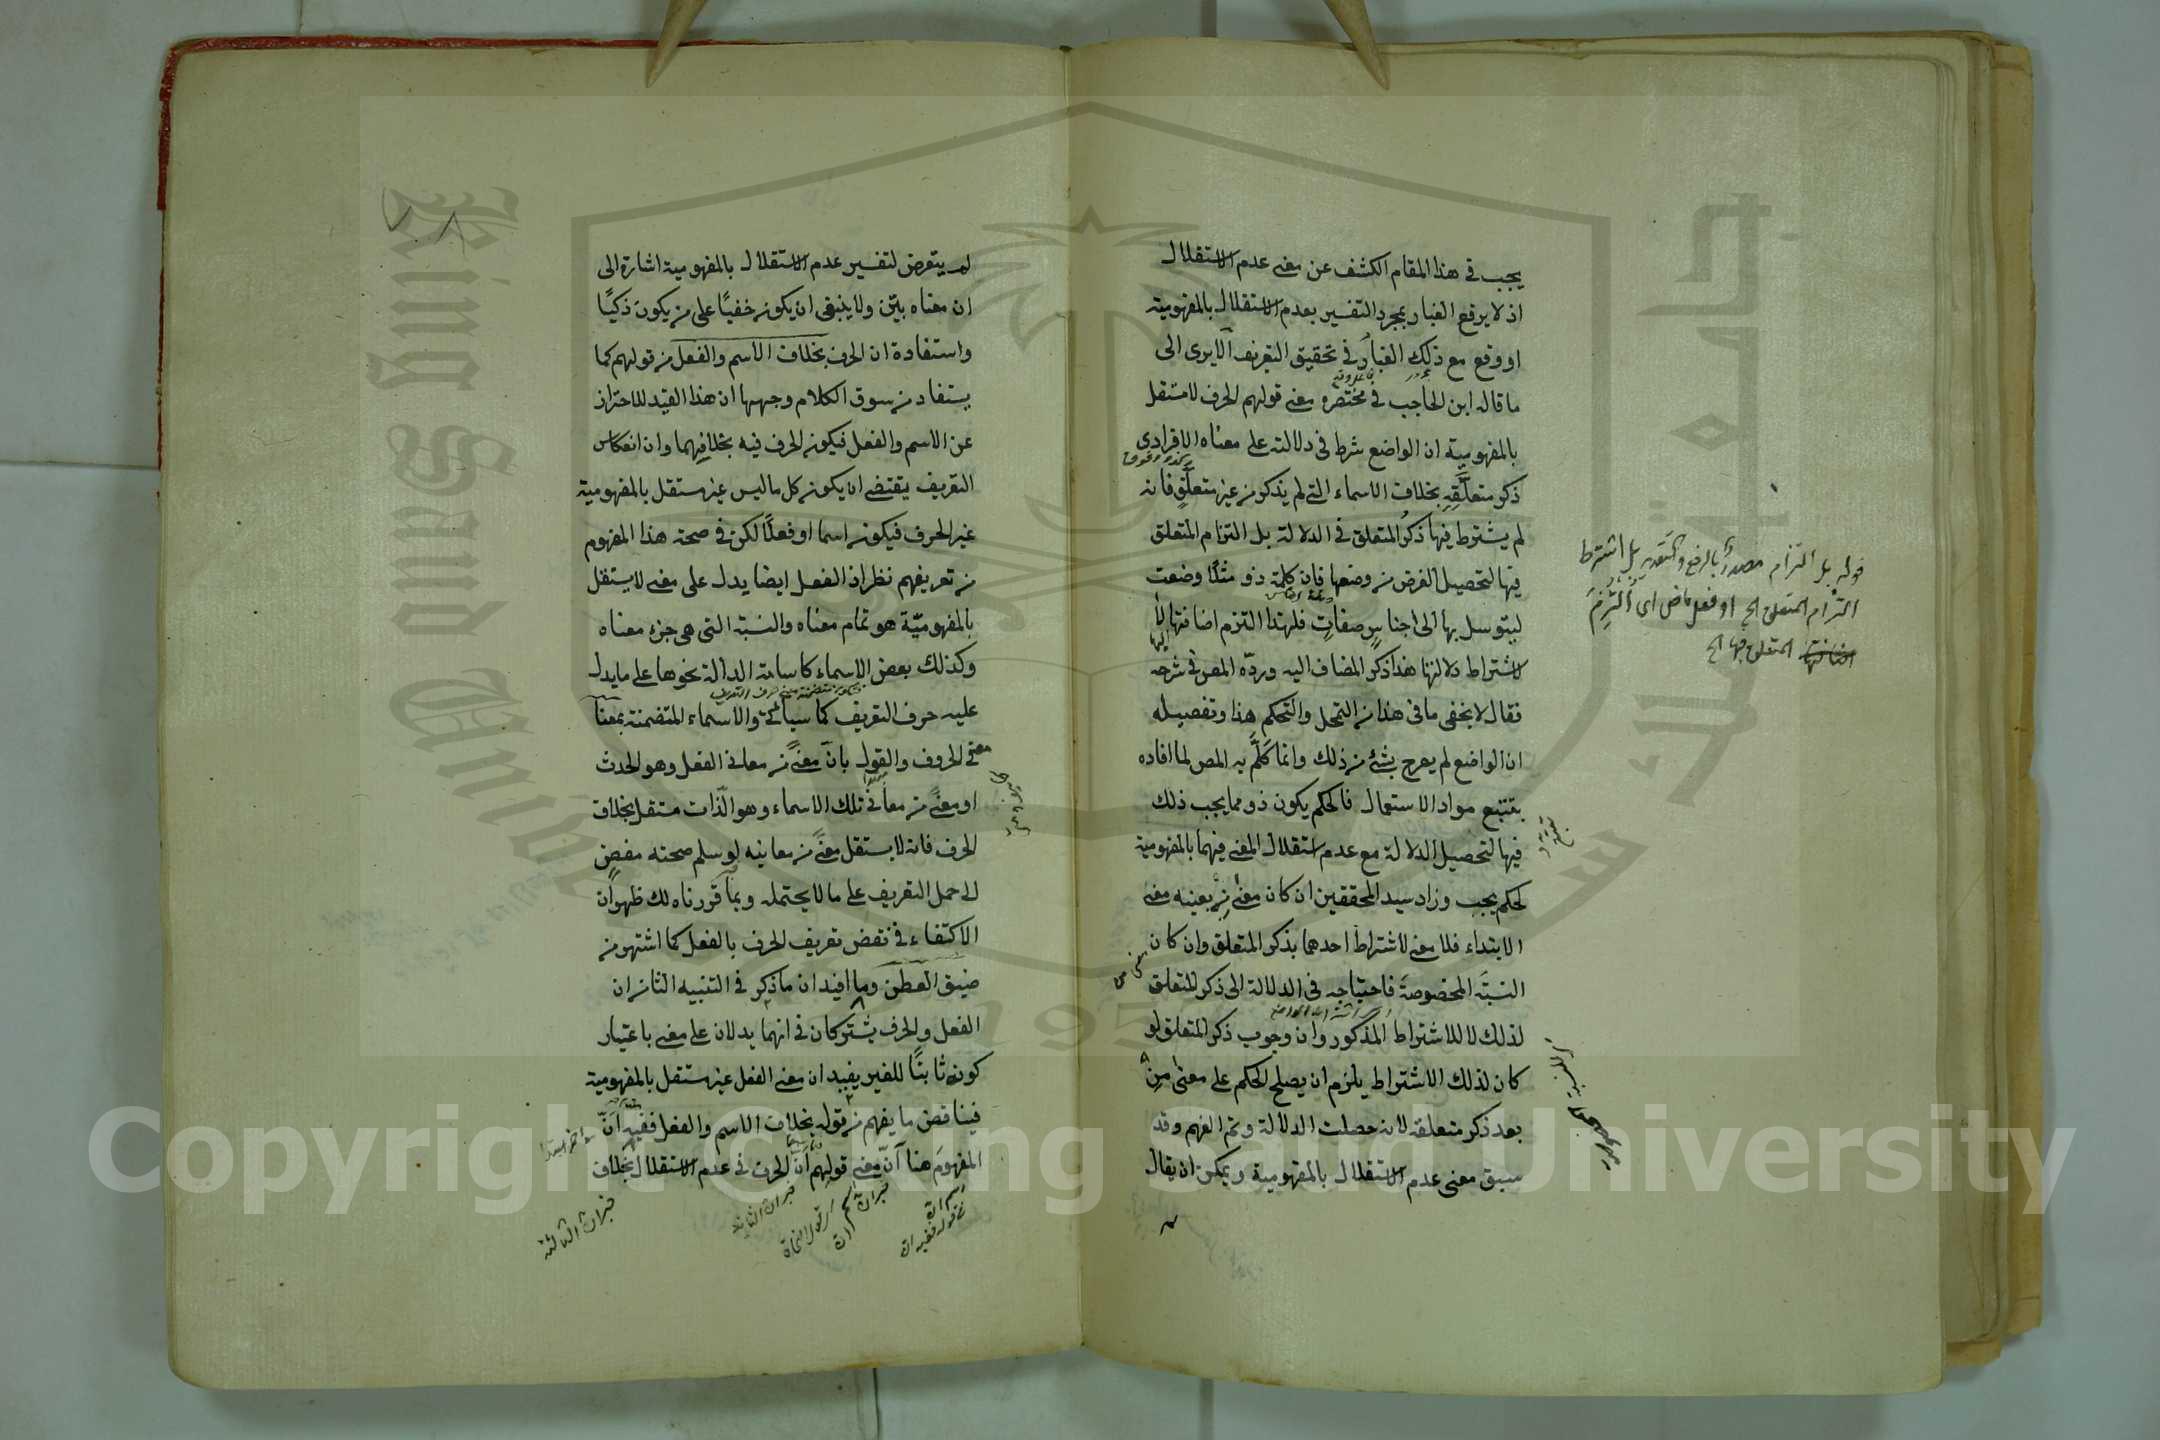 يجب في هذا المقام الكشف عن معنى عدم الاستقلال
اذ لا يرفع الغبار بمجرد التفسير بعدم الاستقلال بالمفهومية
او وقع مع ذلك الغبار في تحقيق التعريف الا يرى الى
ما قاله ابن الحاجب في مختصره معنى قولهم الحرف لا مستقل
بالمفهومية ان الواضع شرط في دلالته على معناه الافرادى
ذكر متعلقه بخلاف الاسماء التي لم يذكر من غير متعلق فانه
لم يشترط فيها ذكر المتعلق في الدلالة بل التزام المتعلق
فيها لتحصيل الغرض من وضعها فان كلمة ذو مثلا وضعت
ليتوسل بها الى اجناس صفات فلهذا التزم اضافتها لا
لاشتراط دلالتها هذا ذكر المضاف اليه وردّه المص في شرحه
فقال لا يخفى ما في هذا من التمحل والتحكم هذا وتفصيله
ان الواضع لم يصرح بشئ من ذلك وانما تكلّم به المص لما افاده
بتتبع مواد الاستعمال فالحكم يكون ذو مما يجب ذلك
فيها لتحصيل الدلالة مع عدم استقلال المعنى فيهما بالمفهومية
لحكم يجب وزاد سيد المحققين ان كان معنى من بعينه معنى
الابتداء فلا معنى لاشتراط احدهما بذكر المتعلق وان كان
النسبة المخصوصة فاحتياجه في الدلالة الى ذكر المتعلق
لذلك لا للاشتراط المذكور وان وجوب ذكر المتعلق لو
كان لذلك الاشتراط يلزم ان يصلح الحكم على معنى من
بعد ذكر متعلقه لانه حصلت الدلالة وتم الفهم وقد
سبق معنى عدم الاستقلال بالمفهومية ويمكن ان يقال
قوله بل التزام مصدر بالرفع والتقدير بل اشترط
التزام المتعلق الخ او فعل ماض اى التزم
المتعلق فيها الخ
لم يتعرض لتفسير عدم الاستقلال بالمفهومية اشارة الى
ان معناه بيّن ولا ينبغى ان يكون خفيًا على من يكون ذكيًا
واستفادة ان الحرف بخلاف الاسم والفعل من قولهم كما
يستفاد من سوق الكلام وجهها ان هذا القيد للاحتراز
عن الاسم والفعل فيكون الحرف فيه بخلافهما وان انعكاس
التعريف يقتضى ان يكون كل ما ليس غير مستقل بالمفهومية
غير الحرف فيكون اسما او فعلًا لكن في صحة هذا المفهوم
من تعريفهم نظر اذ الفعل ايضا يدل على معنى لا يستقل
بالمفهوميّة هو تمام معناه والنسبة التى هى جزء معناه
وكذلك بعض الاسماء كاسامة الدالة نحوها على ما يدل
عليه حرف التعريف كما سيأتى والاسماء المتضمنة بمعنا
معنى الحروف والقول بانّ معنًى من معانى الفعل وهو الحدث
او معنًى من معانى تلك الاسماء وهو الذات مستقل بخلاف
الحرف فانه لا يستقل معنًى من معانيه لو سلم صحته مفضٍ
الى حمل التعريف على ما لا يحتمله وبما قررناه لك ظهر ان
الاكتفاء في نقض تعريف الحرف بالفعل كما اشتهر من
ضيق العطن وما افيد ان ما ذكر في التنبيه الثانى ان
الفعل والحرف يشتركان في انهما يدلان على معنى باعتبار
كونه ثابتًا للغير يفيد ان معنى الفعل غير مستقل بالمفهومية
فيناقض ما يفهم من قوله بخلاف الاسم والفعل ففيه انّ
المفهوم هنا انّ معنى قولهم انّ الحرف في عدم الاستقلال بخلاف
خبر ان الثالثة
خبر ان الثانية
Copyright © King Saud University
King Saud University
1957